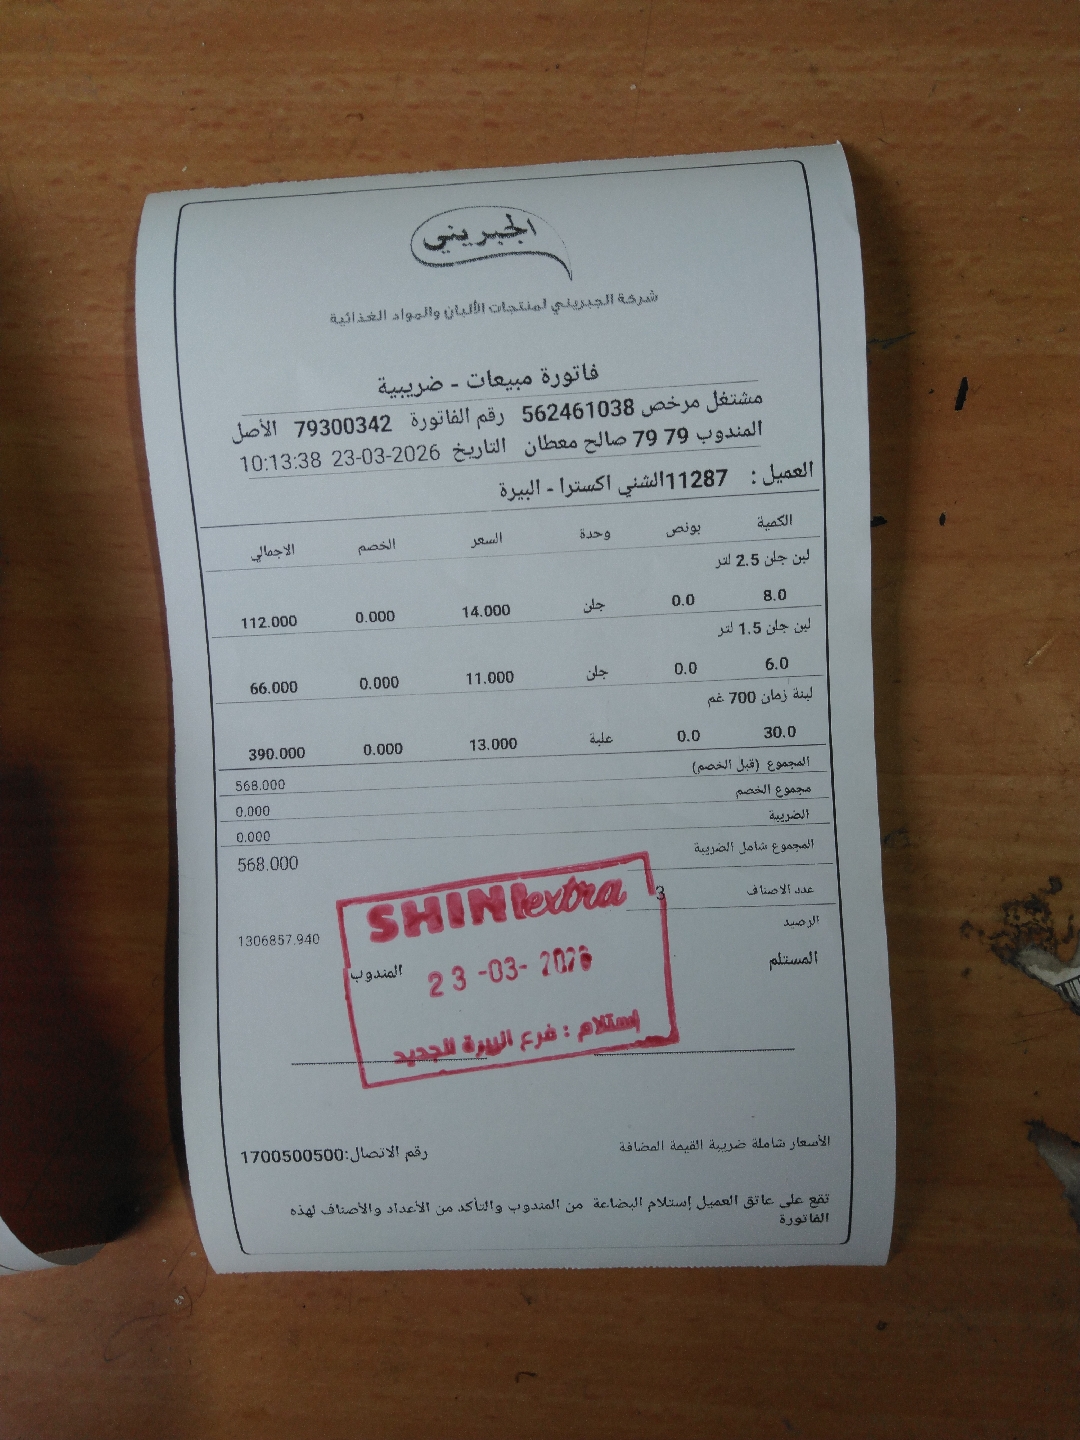 الجبريني
شركة الجبريني لمنتجات الألبان والمواد الغذائية
فاتورة مبيعات - ضريبية
مشتغل مرخص 562461038 رقم الفاتورة 79300342 الأصل
المندوب 79 79 صالح معطان التاريخ 23-03-2026 10:13:38
العميل : 11287الشني اكسترا - البيرة
الكمية بونص وحدة السعر الخصم الاجمالي
لبن جلن 2.5 لتر
8.0 0.0 جلن 14.000 0.000 112.000
لبن جلن 1.5 لتر
6.0 0.0 جلن 11.000 0.000 66.000
لبنة زمان 700 غم
30.0 0.0 علبة 13.000 0.000 390.000
المجموع (قبل الخصم) 568.000
مجموع الخصم 0.000
الضريبة 0.000
المجموع شامل الضريبة 568.000
عدد الاصناف 3
الرصيد 1306857.940
المستلم المندوب
SHINI extra
23-03-2026
إستلام : فرع البيرة الجديد
الأسعار شاملة ضريبة القيمة المضافة رقم الاتصال:1700500500
تقع على عاتق العميل إستلام البضاعة من المندوب والتأكد من الأعداد والأصناف لهذه
الفاتورة